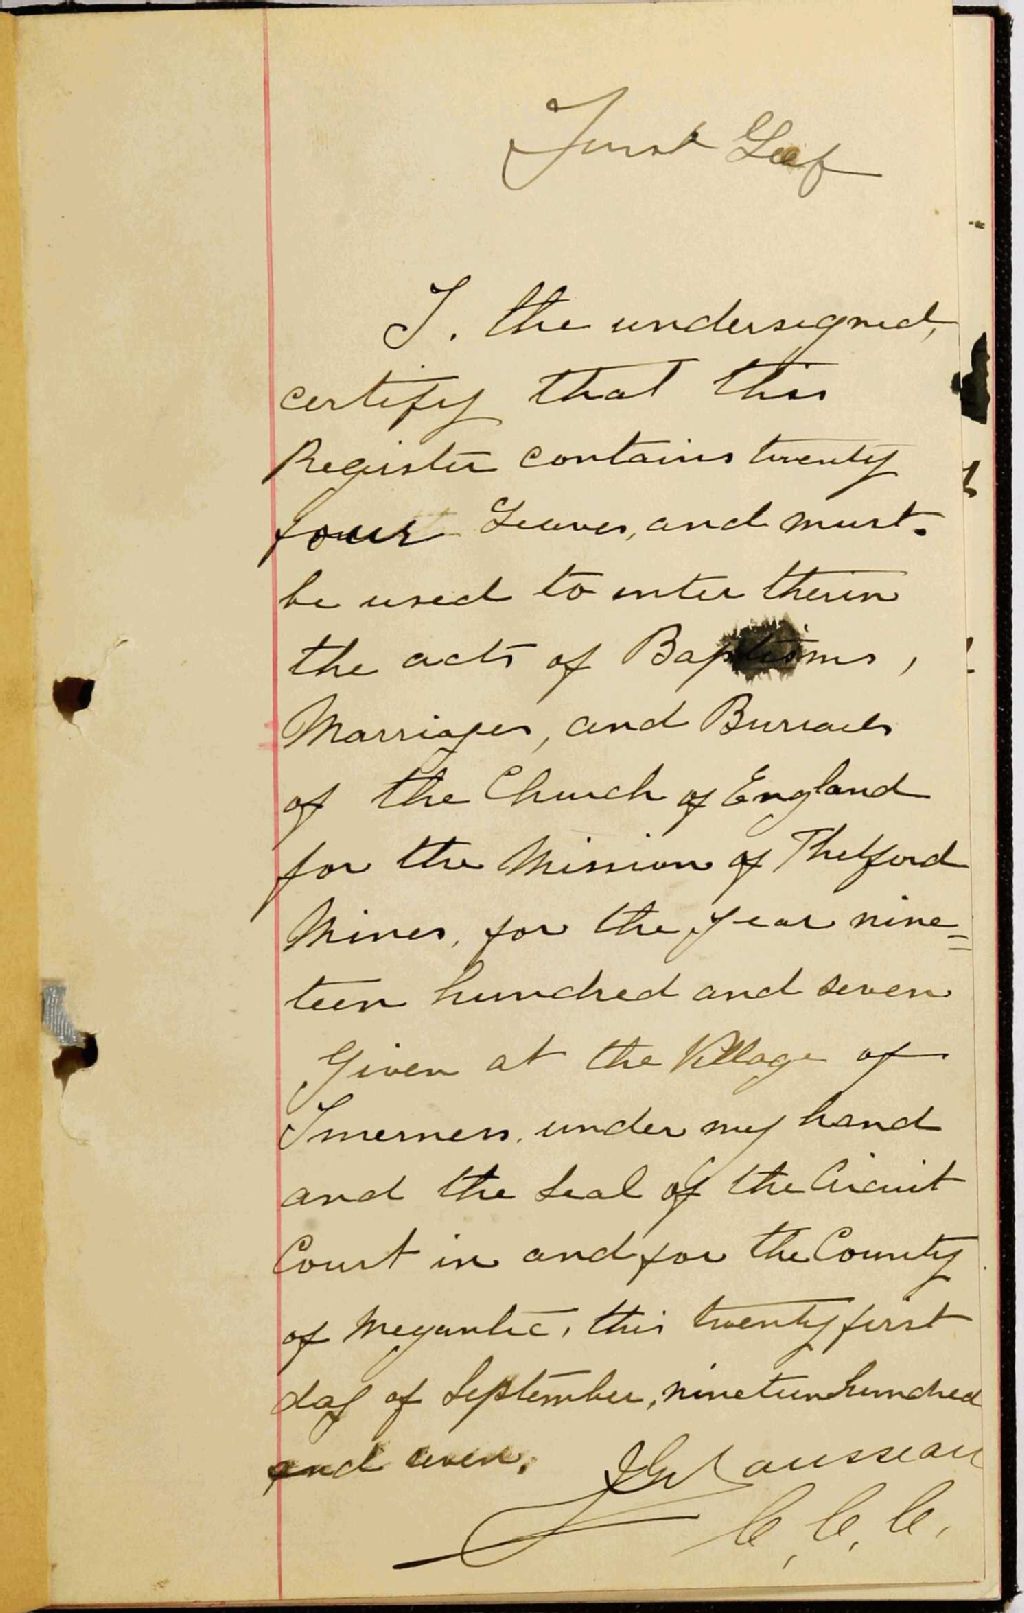 First Leef
I. the undersigned,
certify that this
Register contains twenty
four Leaves, and must.
be used to enter therin
the acts of Baptisms,
Marriages, and Burraels
of the Church of England
for the Mission of Thetford
Mines, for the year nine=
teen hundred and seven
Given at the Village of
Inverness, under my hand
and the Seal of the Circuit
Court in and for the County
of Megantic, this twenty first
day of September, nineteen hundred
and seven.
Rousseau
C. C. C.